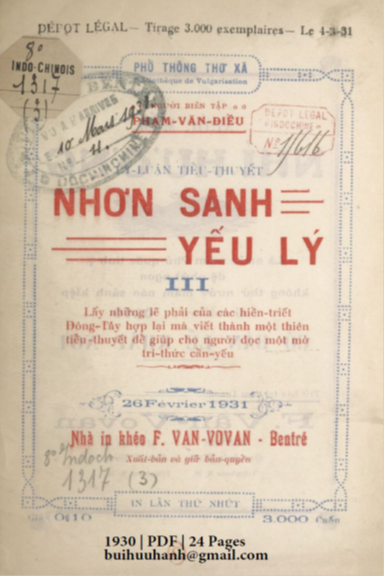 DÉPOT LÉGAL — Tirage 3.000 exemplaires — Le 4-3-31
8°
INDO-CHINOIS
1317
(3)
PHỔ THÔNG THƠ XÃ
Bibliothèque de Vulgarisation
NGƯỜI BIÊN TẬP
PHẠM-VĂN-ĐIÊU
DEPOT LEGAL
INDOCHINE
Nº
10 Mars 1931
LÝ-LUẬN TIỂU-THUYẾT
NHƠN SANH
YẾU LÝ
III
Lấy những lẽ phải của các hiền-triết
Đông-Tây hợp lại mà viết thành một thiên
tiểu-thuyết để giúp cho người đọc một mớ
tri-thức cần-yếu
26 Février 1931
Nhà in khéo F. VAN-VOVAN - Bentré
Xuất-bản và giữ bản-quyền
8° Indoch
1317 (3)
IN LẦN THỨ NHỨT
Giá 0$10
3.000 Cuốn
1930 | PDF | 24 Pages
buihuuhanh@gmail.com